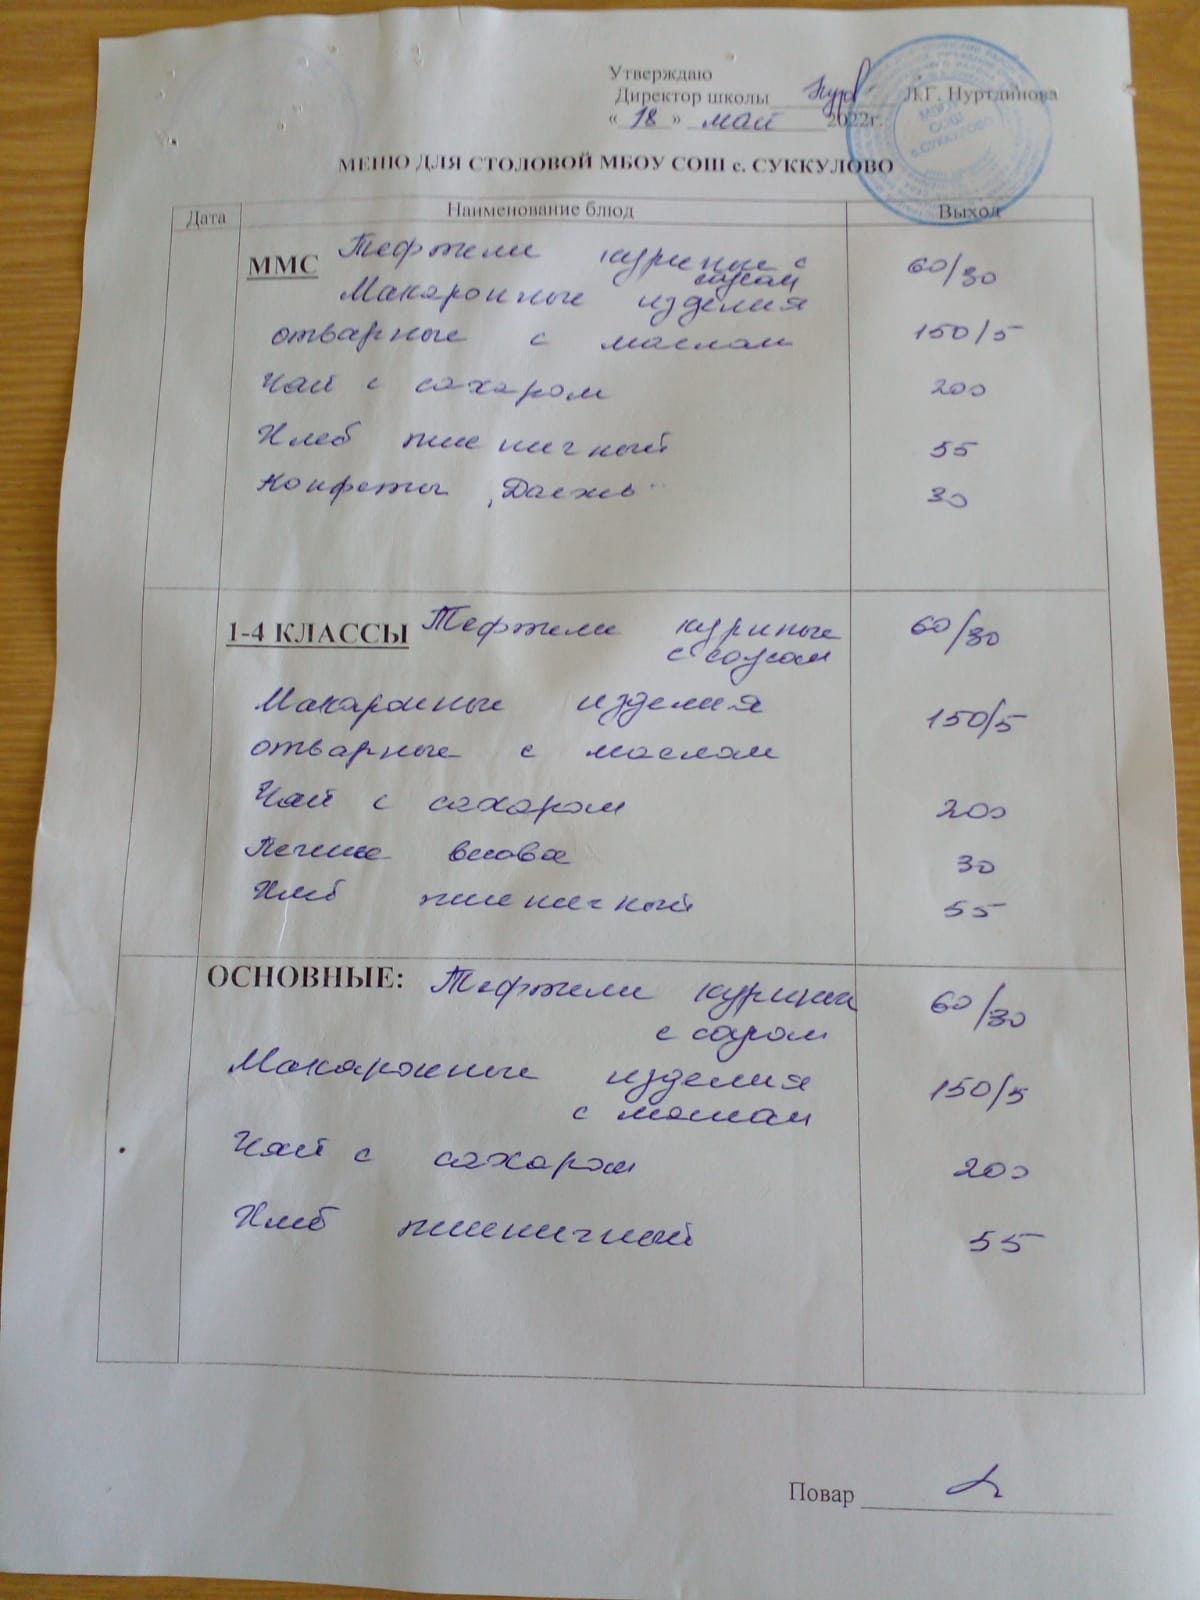 Утверждаю
Директор школы Л.Г. Нуртдинова
« 18 » май 2022г.
МБОУ
СОШ
с.СУККУЛОВО
МЕНЮ ДЛЯ СТОЛОВОЙ МБОУ СОШ с. СУККУЛОВО
Дата Наименование блюд Выход
ММС Тефтели куриные с соусом 60/30
Макаронные изделия
отварные с маслом 150/5
Чай с сахаром 200
Хлеб пшеничный 55
Конфеты 30
1-4 КЛАССЫ Тефтели куриные 60/30
с соусом
Макаронные изделия 150/5
отварные с маслом
Чай с сахаром 200
Печенье 30
Хлеб пшеничный 55
ОСНОВНЫЕ: Тефтели куриные 60/30
с соусом
Макаронные изделия 150/5
с маслом
Чай с сахаром 200
Хлеб пшеничный 55
Повар